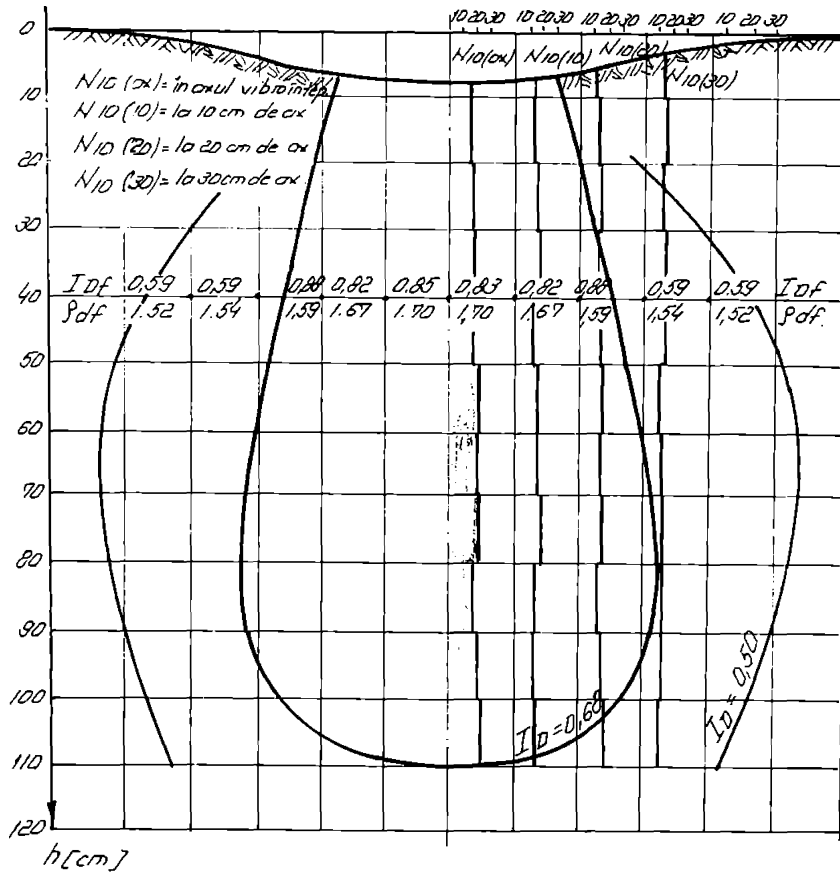 0
10 20 30 10 20 30 10 20 30 10 20 30 10 20 30
N10(ax) N10(10) N10(20) N10(30)
N10 (ax) = in axul vibroînțep.
N10 (10) = la 10 cm de ax
N10 (20) = la 20 cm de ax
N10 (30) = la 30 cm de ax
10
20
30
IDf 0,59 0,59 0,88 0,82 0,85 0,83 0,82 0,88 0,59 0,59 IDf
40
ρdf. 1.52 1.54 1,59 1.67 1.70 1,70 1.67 1,59 1,54 1,52 ρdf.
50
60
70
80
90
100
110
120
ID=0,68
ID=0,50
h[cm]